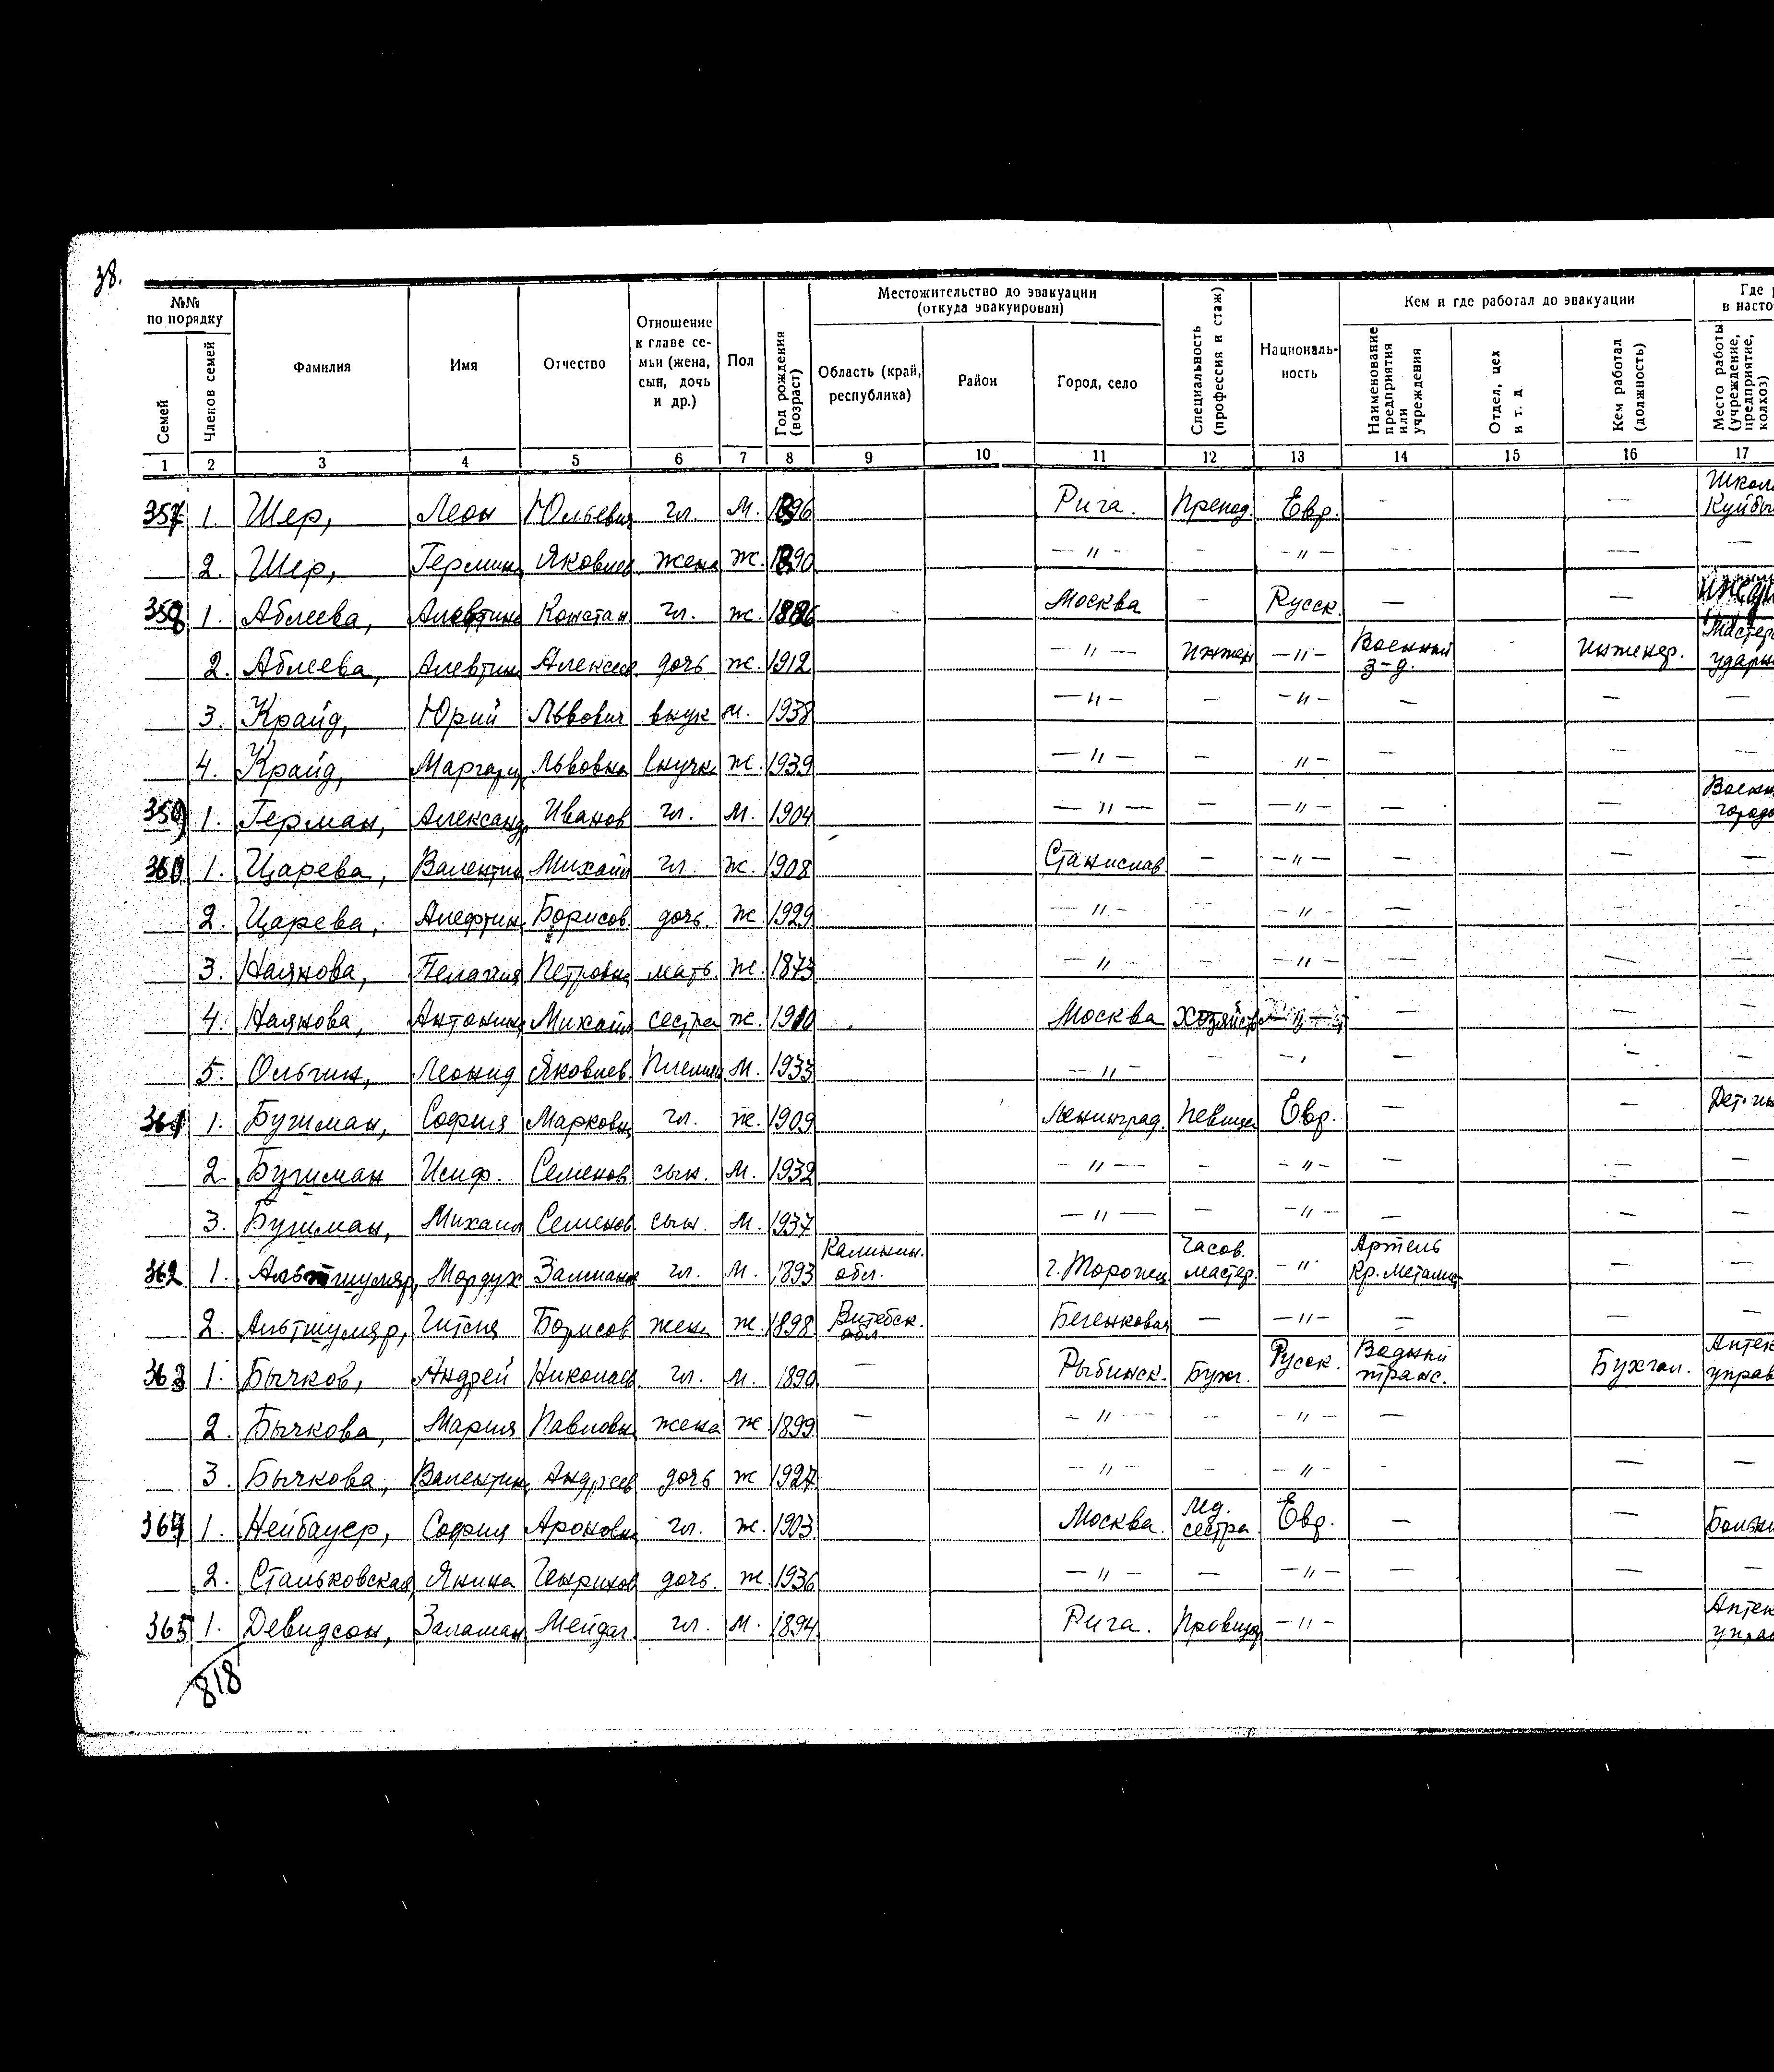 38.
№№ по порядку
Семей
Членов семей
Фамилия
Имя
Отчество
Отношение к главе се-
мьи (жена,
сын, дочь
и др.)
Пол
Год рождения (возраст)
Местожительство до эвакуации
(откуда эвакуирован)
Область (край, республика)
Район
Город, село
Специальность (профессия и стаж)
Националь-
ность
Кем и где работал до эвакуации
Наименование предприятия или учреждения
Отдел, цех и т. д
Кем работал (должность)
Где
в насто
Место работы (учреждение, предприятие, колхоз)
1 2 3 4 5 6 7 8 9 10 11 12 13 14 15 16 17
357 1. Шер, Леон Юльевич гл. М. 1896 Рига. Препод. Евр. — — Школ Куйбы
2. Шер, Гермин Яковлев жена ж. 1890 — " — — — " — — — —
358 1. Аблеева, Алевтина Констан гл. ж. 1886 Москва — Русск. — —
2. Аблеева, Алевтин Алексее дочь ж. 1912 — " — Инжен — " — Военный з-д. инженер. Мастер ударн
3. Крайд, Юрий Львович внук м. 1938 — " — — — " — — — —
4. Крайд, Маргари Львовна внучка ж. 1939 — " — — " — — — —
359 1. Герман, Александ Иванов гл. М. 1904 — " — — — " — — — Военн городо
360 1. Царева, Валентин Михайл гл. ж. 1908 Станислав — — " — — — —
2. Царева, Алефтин Борисов дочь ж. 1929 — " — — — " — — — —
3. Наянова, Пелагия Петровна мать ж. 1873 — " — — — " — — — —
4. Наянова, Антонин Михайл сестра ж. 1910 Москва Хозяйств — " — — — —
5. Ольгин, Леонид Яковлев. Племян М. 1933 — " — — — " — — —
361 1. Бугиман, София Марковна гл. ж. 1909 Ленинград. Певица Евр. — — Дет.
2. Бугиман Исиф. Семенов сын. М. 1932 — " — — — " — — — —
3. Бугиман, Михаил Семенов сын. М. 1937 — " — — — " — — — —
362 1. Альтшуляр, Мордух Залман гл. М. 1893 Калинин. обл. г. Торопец Часов. мастер. — " — Артель Кр. Металист — —
2. Альтшуляр, Гитля Борисов жена ж. 1898 Витебск. обл. Бешенковая — — " — — — —
363 1. Бычков, Андрей Николаев гл. м. 1890 — Рыбинск. Бухг. Русск. Водный транс. Бухгал. Аптек управ
2. Бычкова, Мария Павловн жена ж 1899 — — " — — — " — —
3. Бычкова, Валентин Андреев дочь ж 1927 — " — — — " — — — —
364 1. Нейбауер, София Ароновна гл. ж. 1903 Москва. Мед. сестра Евр. — — Больни
2. Стальковская Янина Генрихов дочь. ж. 1936 — " — — — " — — — —
365 1. Девидсон, Заламан Мейдаг. гл. М. 1894 Рига. Провизор — " — Аптек управ
818